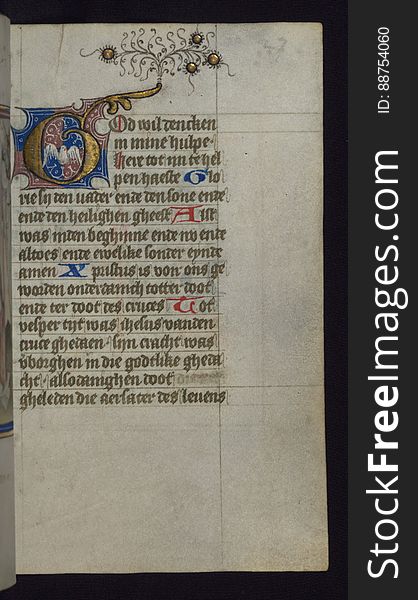 God wil dencken
in mine hulpe
Here tot mi te hel
pen haeste Glo
rie sy den uader ende den sone ende
ende den heilighen gheest Alst
was inden beghinne ende nv ende
altoes ende ewelike sonder eynde
amen Xpristus is von ons ge
worden onderdanich totter doot
ende ter doot des cruces Tot
vesper tijt was ihesus vanden
cruce ghedaen syn cracht was
vborghen in die godtlike gheda
cht alsodanighen doot
gheleden die aersater des leuens
StockFreeImages.com
ID: 88754060